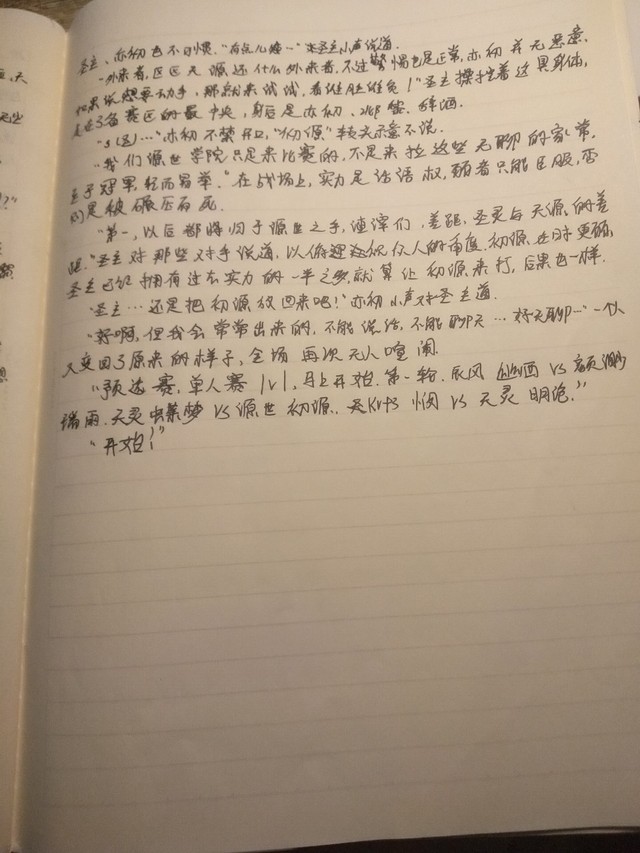 圣主、亦初也不习惯."有点儿矮…"本圣主小声说道.
"外来者,区区天源还什么外来者,不过警惕也是正常,亦初并无恶意,
如果说想要动手,那就来试试,看谁胜谁负!"圣主操控着这具身体,
走在了各赛区的最中央,身后是亦初、
"主(圣)…"亦初不禁开口,"初源"转头示意不说.
"我们源世学院只是来比赛的,不是来扯这些无聊的家常,
至于冠军,轻而易举."在战场上,实力是话语权,弱者只能臣服,否
则是被碾压而死.
"第一,以后都将归于源世之手,渣滓们,差距,圣灵与天源的差
距."圣主对那些对手说道,以俯视众人的角度.初源此时更强,
圣主已经拥有过去实力的一半之多,就算让初源来打,后果也一样.
"圣主…还是把初源放回来吧!"亦初小声对圣主道.
"好啊,但我会常常出来的,不能说话,不能聊天…好无聊…"一个人
又变回了原来的样子,全场再次无人喧闹.
"预选赛,单人赛1v1,马上开始.第一轮.辰风 vs
瑞雨.天灵 梦vs源世初源. vs天灵明
"开始!"